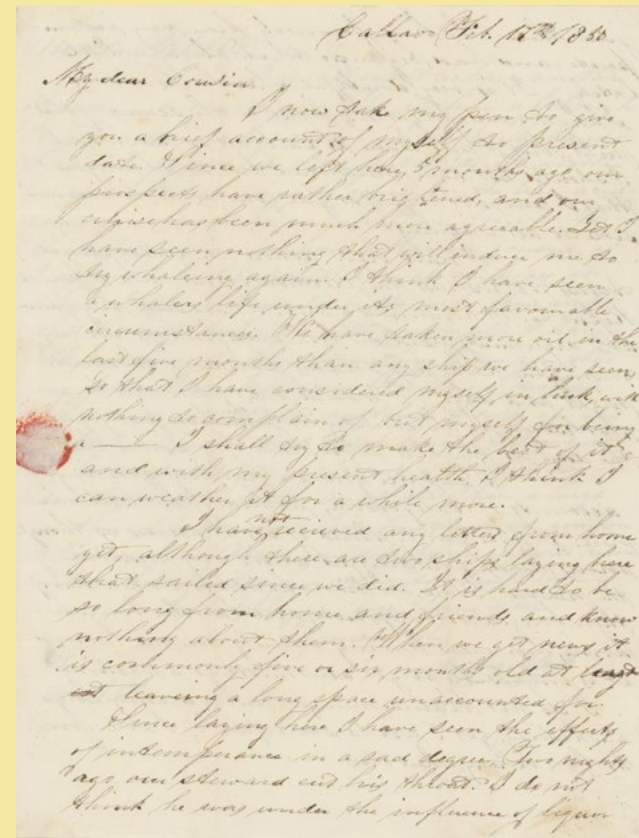 Callao Feb. 17th 1850
My dear Cousin
I now take my pen to give
you a brief account of myself to present
date. Since we left here, 5 months ago our
prospects have rather brightened, and our
cruise has been much more agreable. Yet I
have seen nothing that will induce me to
try whaleing again. I think I have seen
a whalers life under its most favourable
circumstances. We have taken more oil in the
last five months than any ship we have seen,
so that I have considered myself in luck, with
nothing to complain of but myself for being
a —— I shall try to make the best of it
and with my present health I think I
can weather it for a while more.
I have not recieved any letter from home
yet, although there are two ships laying here
that sailed since we did. It is hard to be
so long from home and friends and know
nothing about them. When we get news it
is commonly five or six months old at least
leaveing a long space unaccounted for.
Since laying here I have seen the effects
of intemperance in a sad degree. Two nights
ago our steward cut his throat. I do not
think he was under the influence of liquor